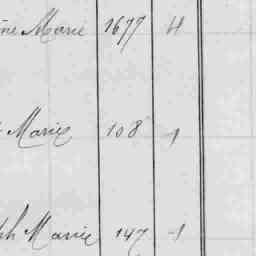 ine Marie 1677 H
Marie 108 1
ph Marie 147 1